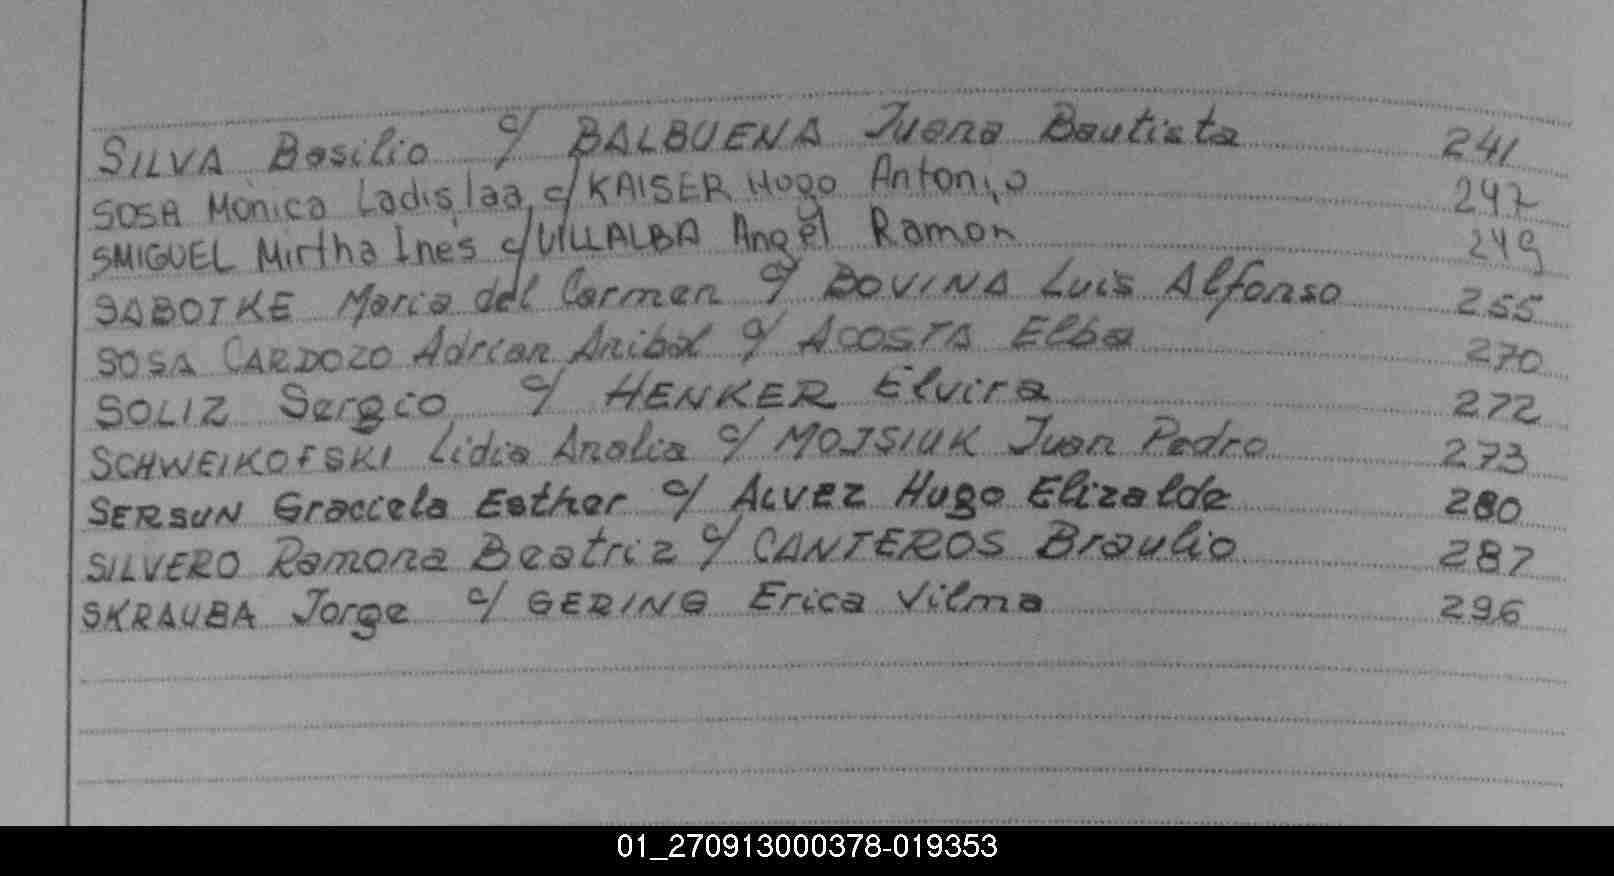 SILVA Basilio c/ BALBUENA Juana Bautista 241
SOSA Mónica Ladislaa c/ KAISER Hugo Antonio 247
SMIGUEL Mirtha Inés c/ VILLALBA Angel Ramon 249
SABOTKE Maria del Carmen c/ BOVINA Luis Alfonso 255
SOSA CARDOZO Adrian Anibal c/ ACOSTA Elba 270
SOLIZ Sergio c/ HENKER Elvira 272
SCHWEIKOFSKI Lidia Analia c/ MOJSIUK Juan Pedro 273
SERSUN Graciela Esther c/ ALVEZ Hugo Elizalde 280
SILVERO Ramona Beatriz c/ CANTEROS Braulio 287
SKRAUBA Jorge c/ GERING Erica Vilma 296
01_270913000378-019353